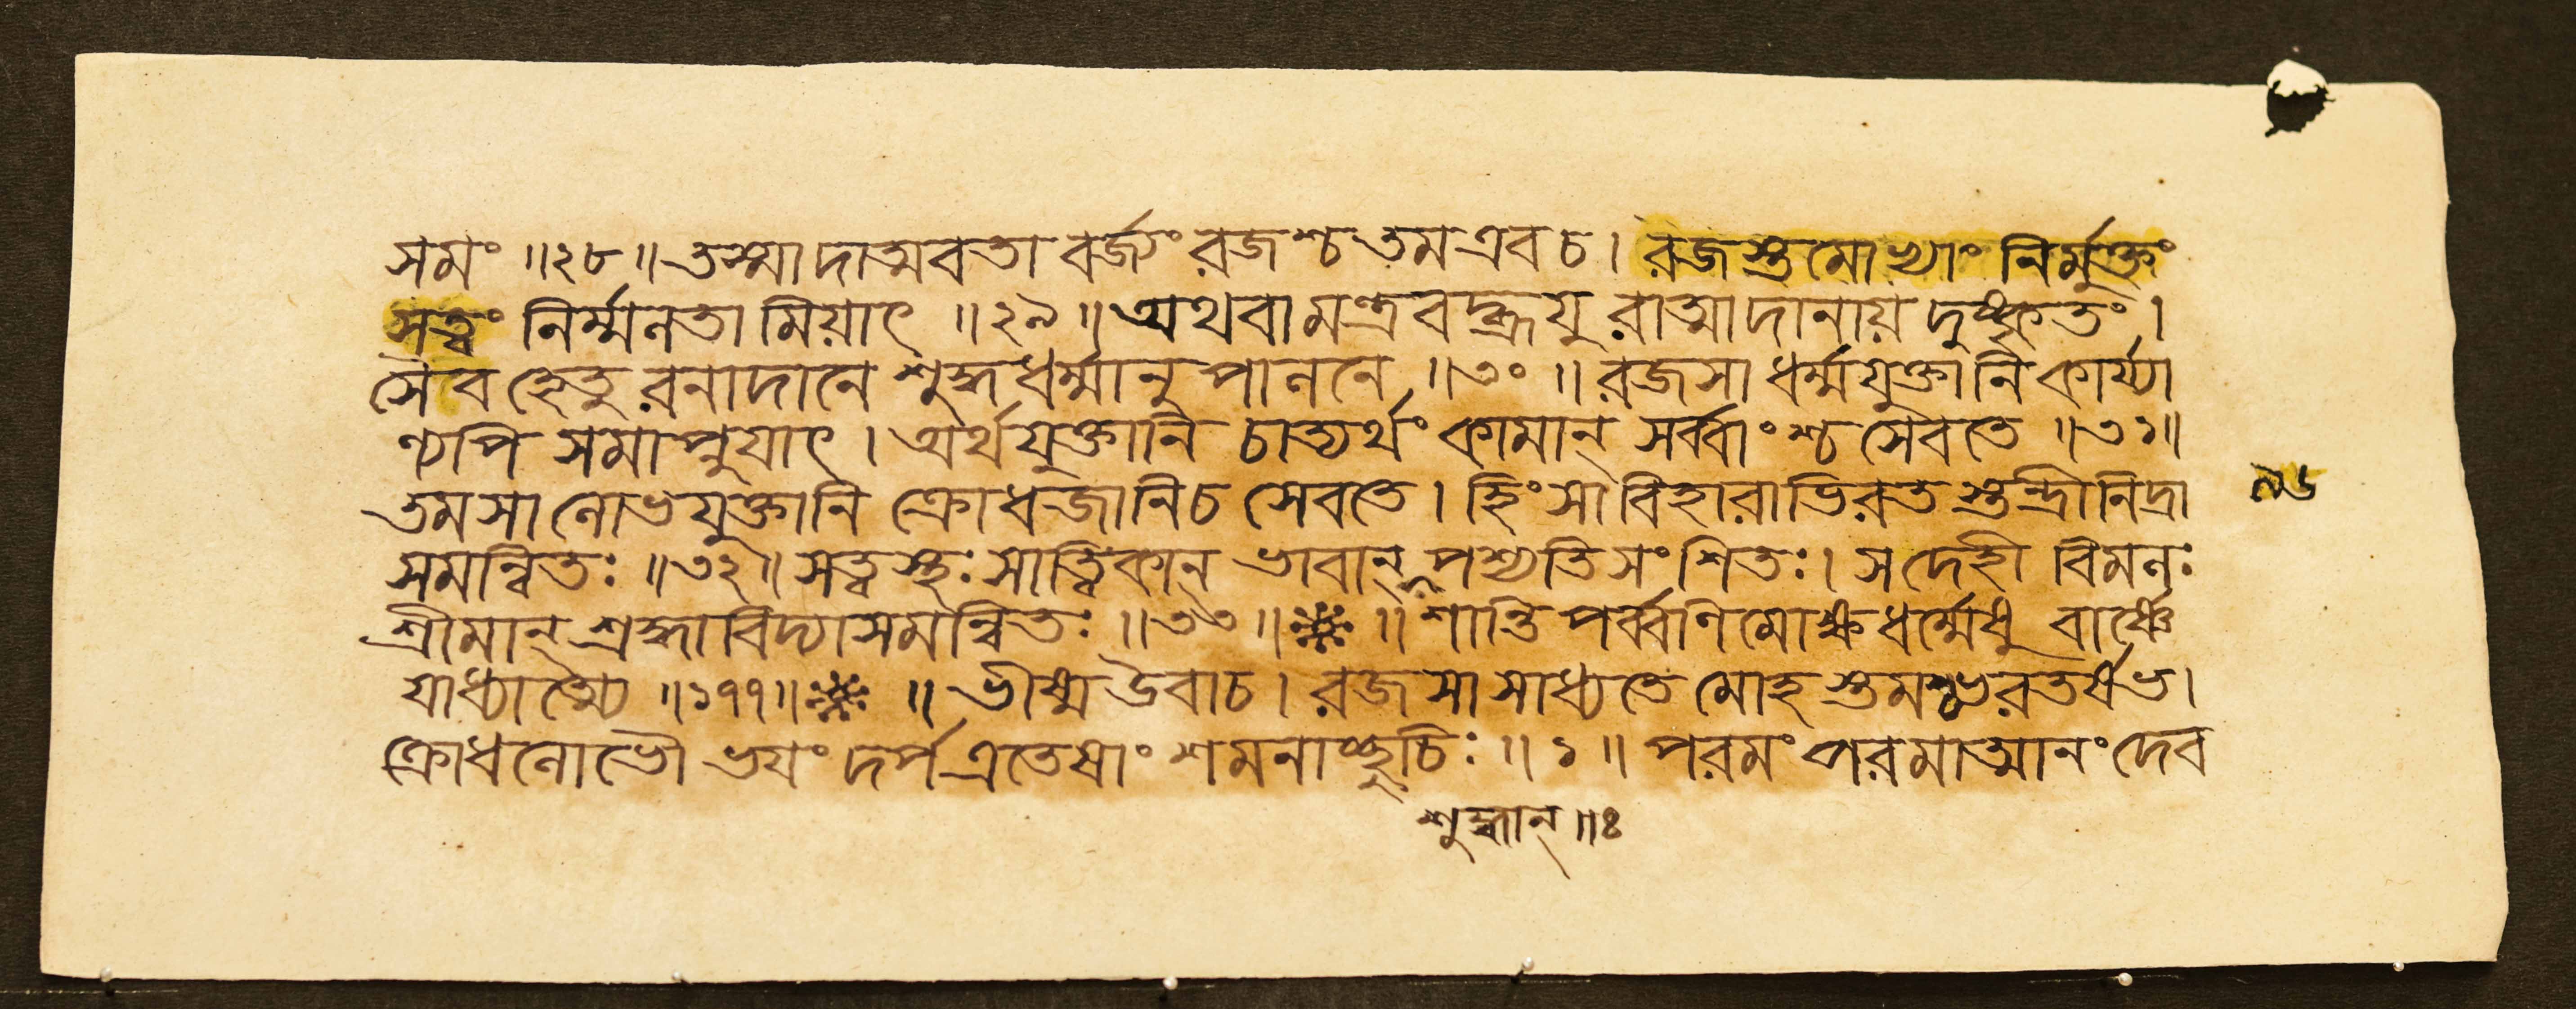 সমং ॥২৮॥ তস্মাদাত্মবতা বর্জ্যং রজশ্চ তম এব চ। রজস্তমোভ্যাং নির্মুক্তং
সত্ত্বং নির্ম্মলতামিয়াৎ ॥২৯॥ অথবা মন্ত্রবদ্ব্রূয়ুরাত্মাদানায় দুষ্কৃতং।
সৈব হেতুরনাদানে শুদ্ধধর্ম্মানুপালনে ॥৩০॥ রজসা ধর্ম্মযুক্তানি কার্য্যা
ণ্যপি সমাপ্নুয়াৎ। অর্থযুক্তানি চাত্যর্থং কামান্ সর্ব্বাংশ্চ সেবতে ॥৩১॥
তমসা লোভযুক্তানি ক্রোধজানি চ সেবতে। হিংসাবিহারাভিরতস্তন্দ্রীনিদ্রা
সমন্বিতঃ ॥৩২॥ সত্ত্বস্থঃ সাত্ত্বিকান্ ভাবান্ পশ্যতি সংশিতঃ। স দেহী বিমলঃ
শ্রীমান্ শ্রদ্ধাবিদ্যাসমন্বিতঃ ॥৩৩॥ ॥ শান্তিপর্ব্বণি মোক্ষধর্ম্মেষু বার্ষ্ণে
য়াধ্যাত্ম্যে ॥১৭৭॥ ॥ ভীষ্ম উবাচ। রজসা সাধ্যতে মোহস্তমশ্চ ভরতর্ষভ।
ক্রোধলোভৌ ভয়ং দর্প এতেষাং শমনাচ্ছুচিঃ ॥১॥ পরমং পরমাত্মানং দেব
শুদ্ধান্ ॥ঃ
৯৬